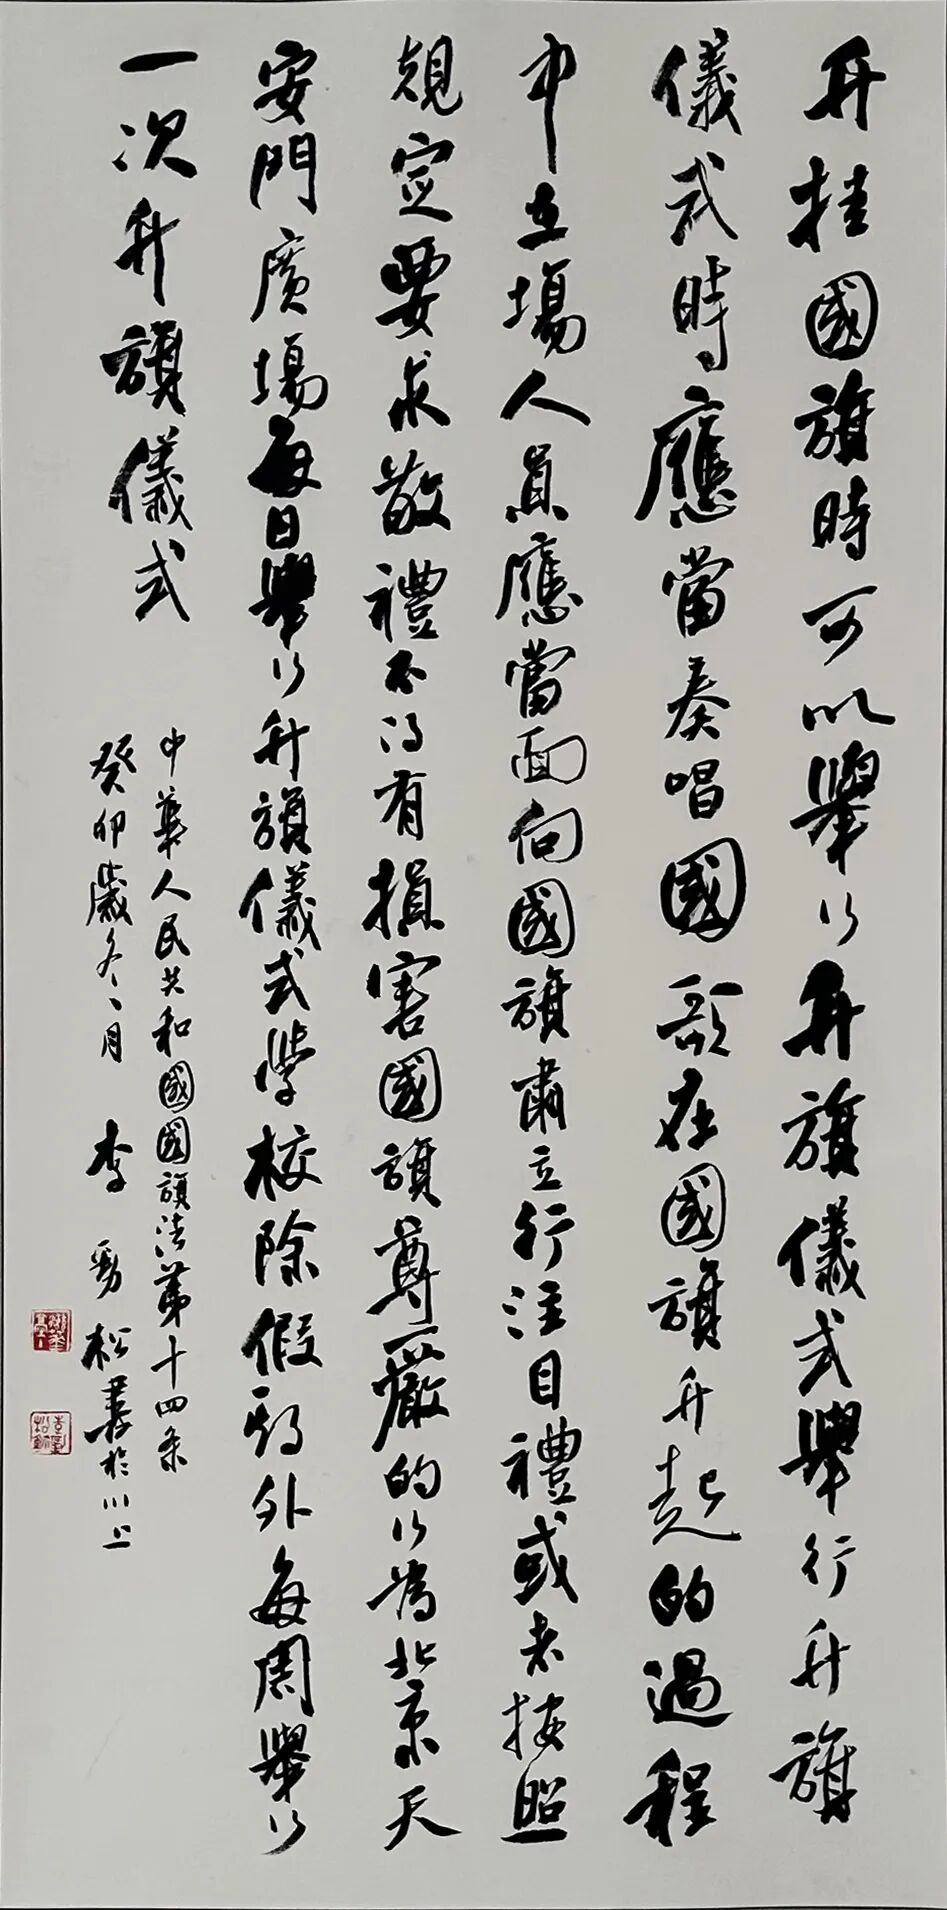 升挂國旗時可以舉行升旗儀式舉行升旗
儀式時應當奏唱國歌在國旗升起的過程
中在場人員應當面向國旗肅立行注目禮或者按照
規定要求敬禮不得有損害國旗尊嚴的行為北京天
安門廣場每日舉行升旗儀式學校除假期外每周舉行
一次升旗儀式
中華人民共和國國旗法第十四条
癸卯歲冬月 李勁松書於川上